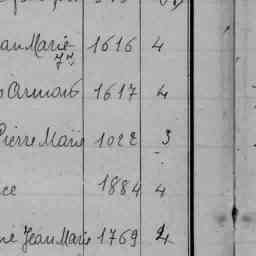 an Marie 1616 4
Armand 1617 4
Pierre Marie 1022 3
ce 1884 4
né Jean Marie 1769 4